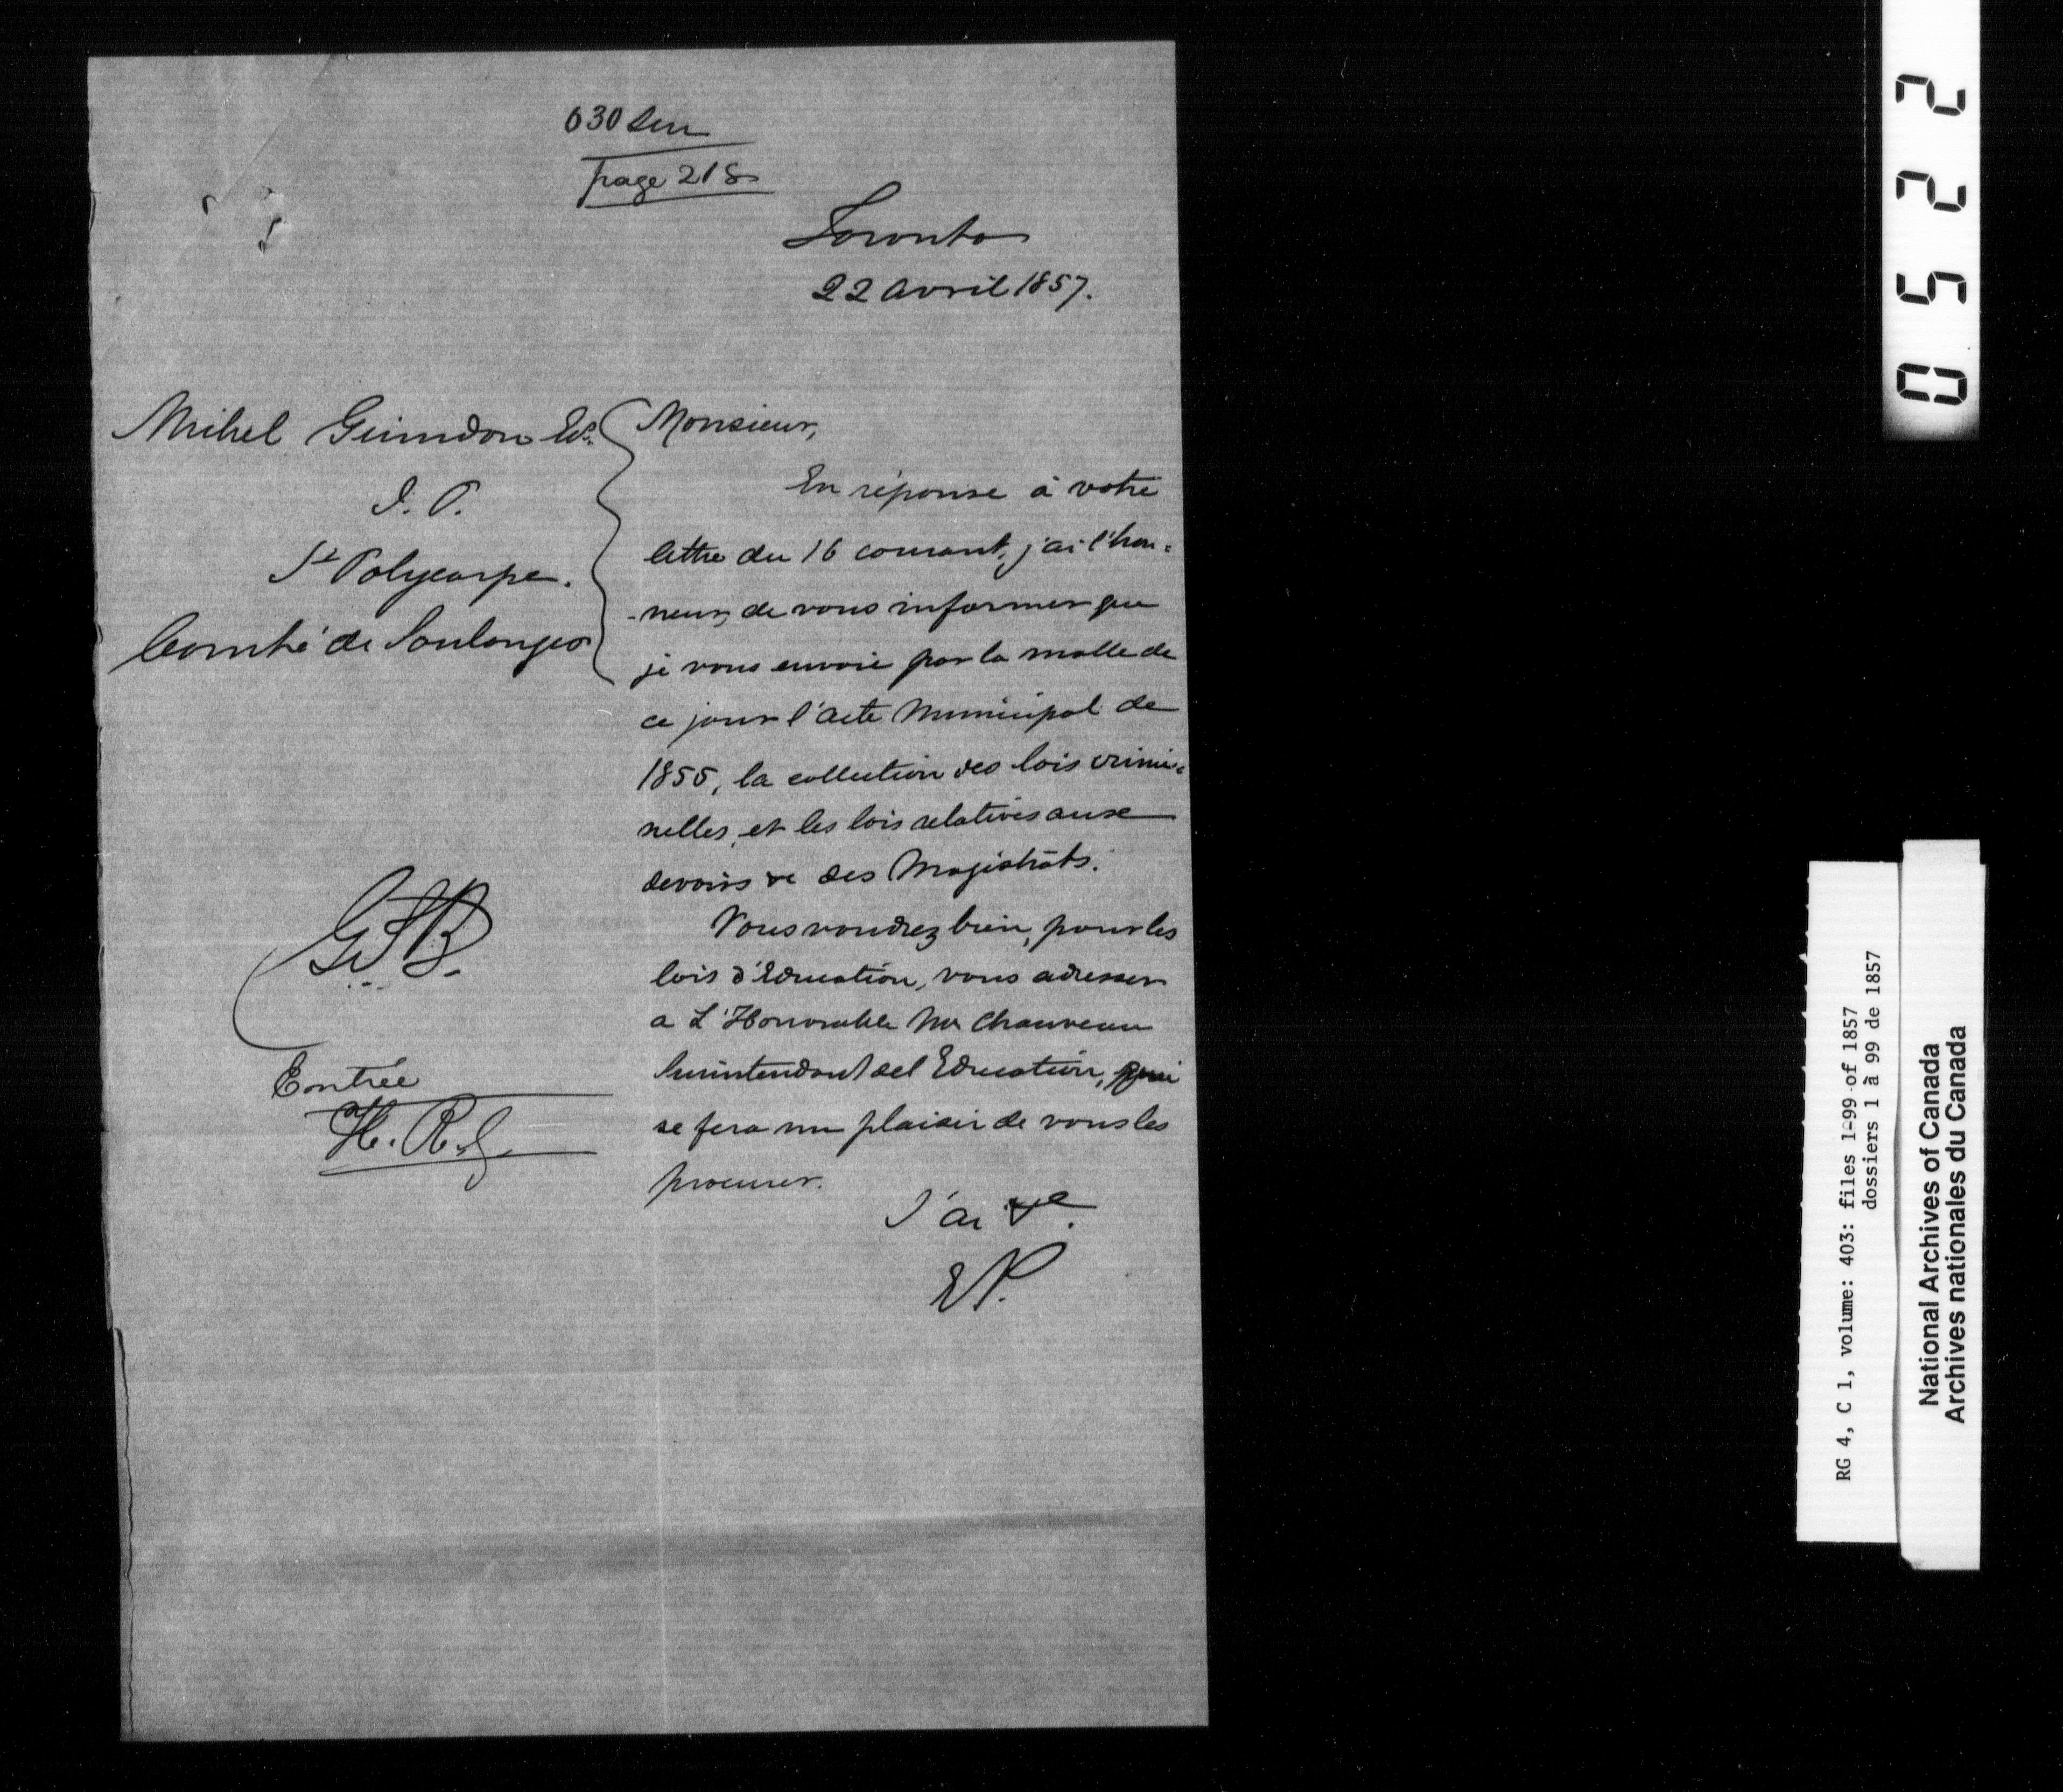 630 Sen
page 218
Toronto
22 avril 1857.
Mihel Guindon Ecr.
J. P.
St Polycarpe.
Comté de Soulanges
Monsieur,
En réponse à votre
lettre du 16 courant, j'ai l'hon-
-neur, de vous informer que
je vous envoie par la malle de
ce jour l'acte Municipal de
1855, la collection des lois crimi-
nelles, et les lois relatives aux
devoirs &c des Magistrats.
Vous voudrez bien, pour les
lois d'Education, vous adresser
a L'Honorable Mr Chauveau
Surintendant del Education, qui
se fera un plaisir de vous les
procurer.
J'ai &c.
EP.
Entrée
0522
RG 4, C 1, volume: 403: files 1-99 of 1857
dossiers 1 à 99 de 1857
National Archives of Canada
Archives nationales du Canada